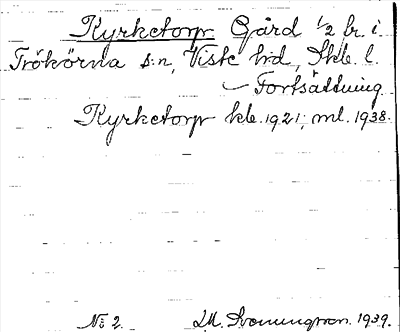 Kyrketorp Gård 1/2 br. i
Trökörna s:n, Viste hd, Skb. l.
Fortsättning
Kyrketorp kb. 1921; ml. 1938.
No 2. 1939.